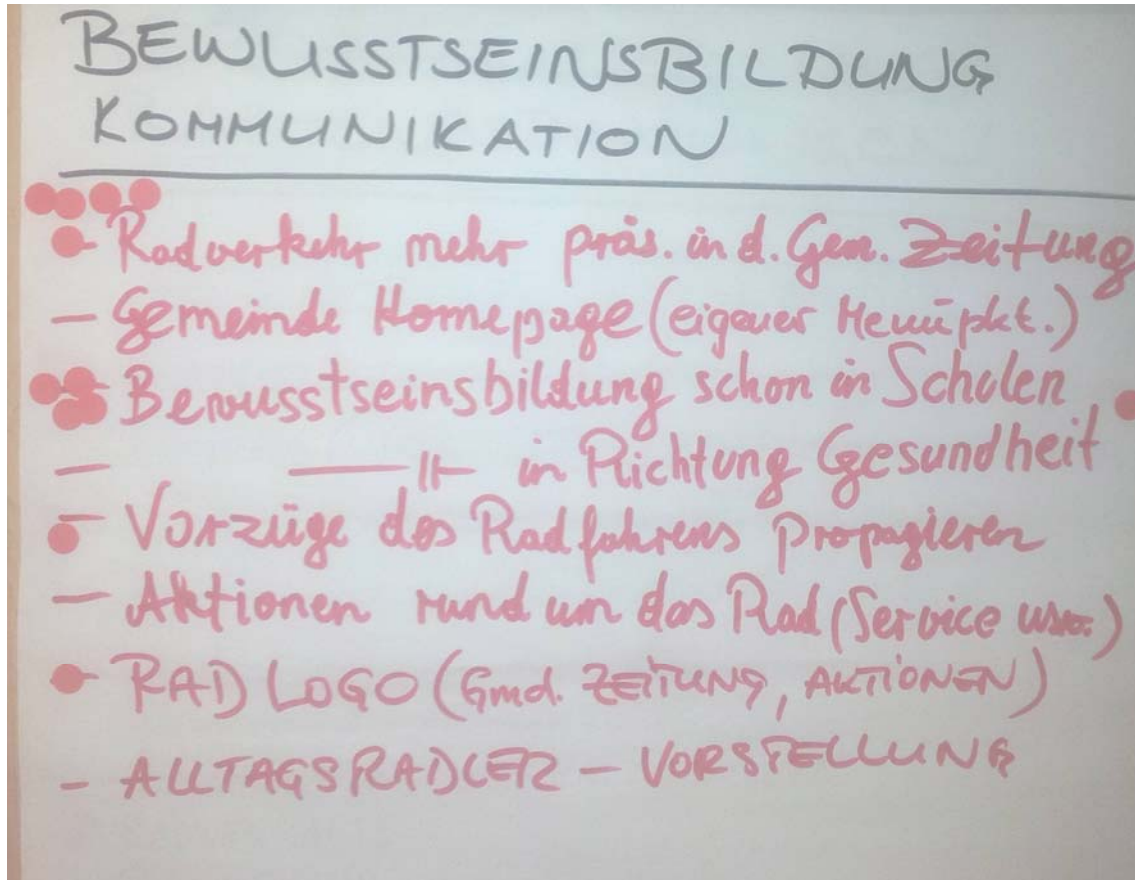 BEWUSSTSEINSBILDUNG
KOMMUNIKATION
- Radverkehr mehr präs. in d. Gem. Zeitung
- Gemeinde Homepage (eigener Menüpkt.)
- Bewusstseinsbildung schon in Schulen
- —"— in Richtung Gesundheit
- Vorzüge des Radfahrens propagieren
- Aktionen rund um das Rad (Service usw.)
- RAD LOGO (Gmd. ZEITUNG, AKTIONEN)
- ALLTAGSRADLER - VORSTELLUNG